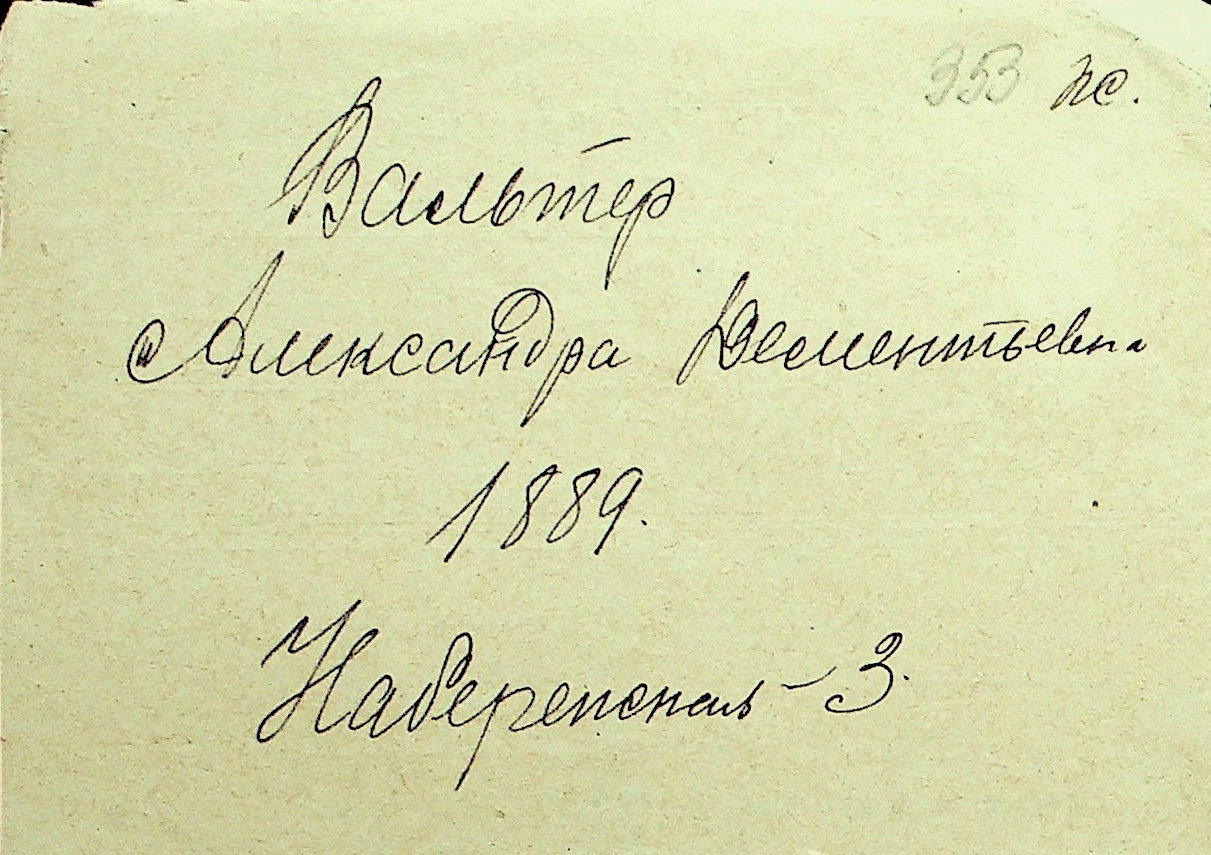 353 пс.
Вальтер
Александра Дементьевна
1889.
Набережная - 3.